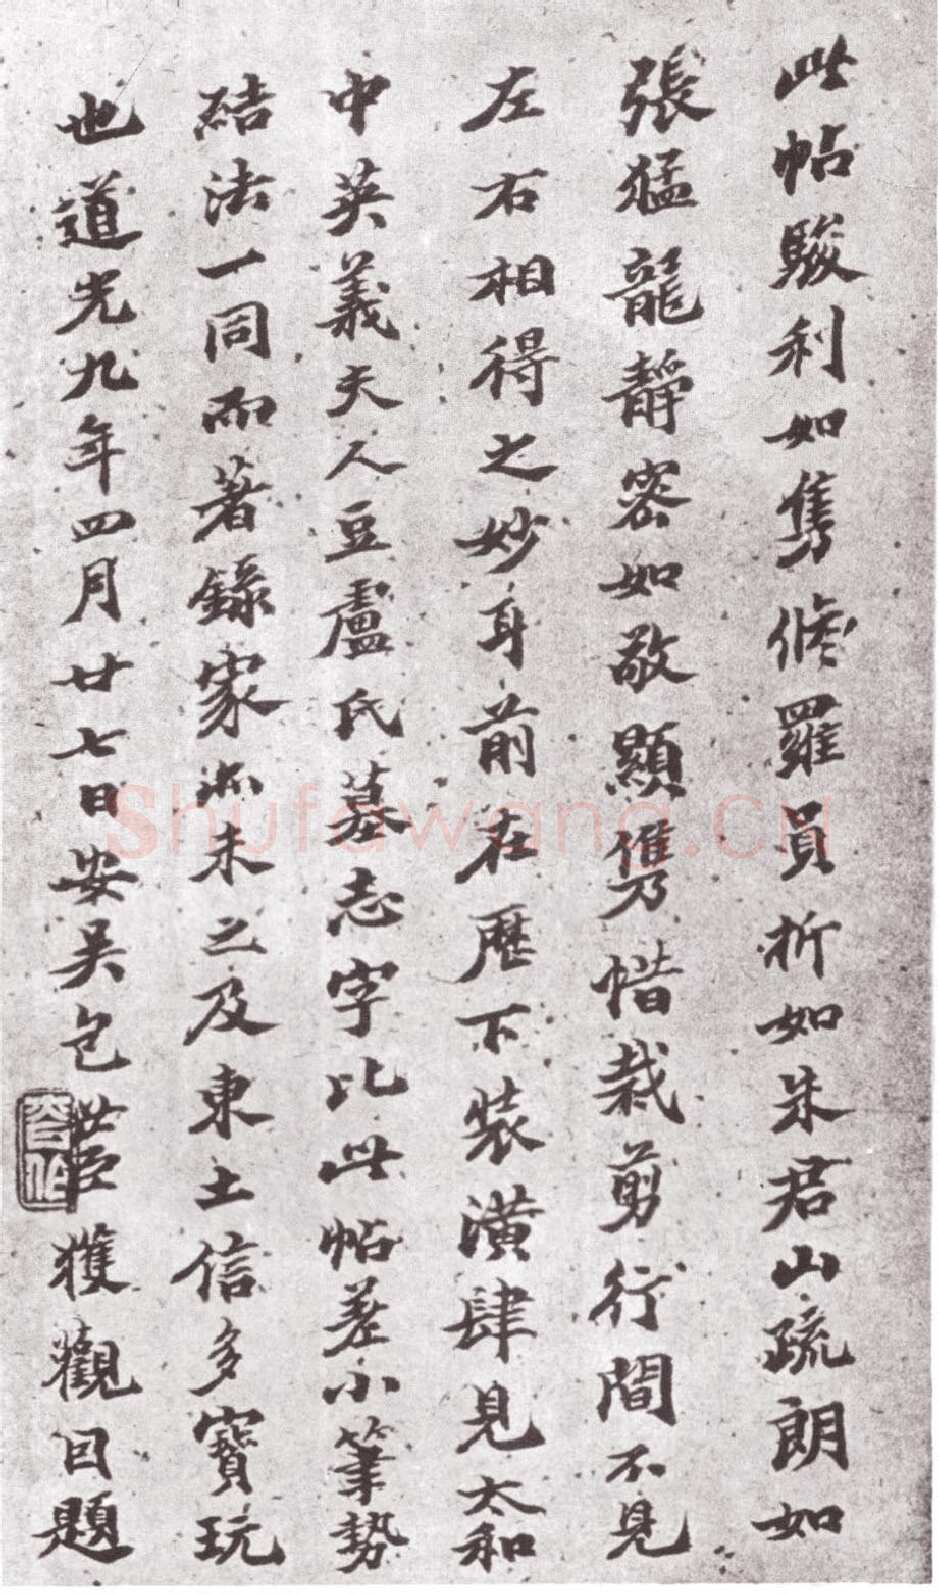 此帖駿利如雋脩羅員折如朱君山疏朗如
張猛龍靜密如敬顯儁惜裁剪行間不見
左右相得之妙身前在歷下裝潢肆見太和
中英義夫人豆盧氏墓志字比此帖差小筆勢
結法一同而著錄家亦未之及東土信多寶玩
也道光九年四月廿七日安吳包世臣獲觀因題
Shufawang.CN